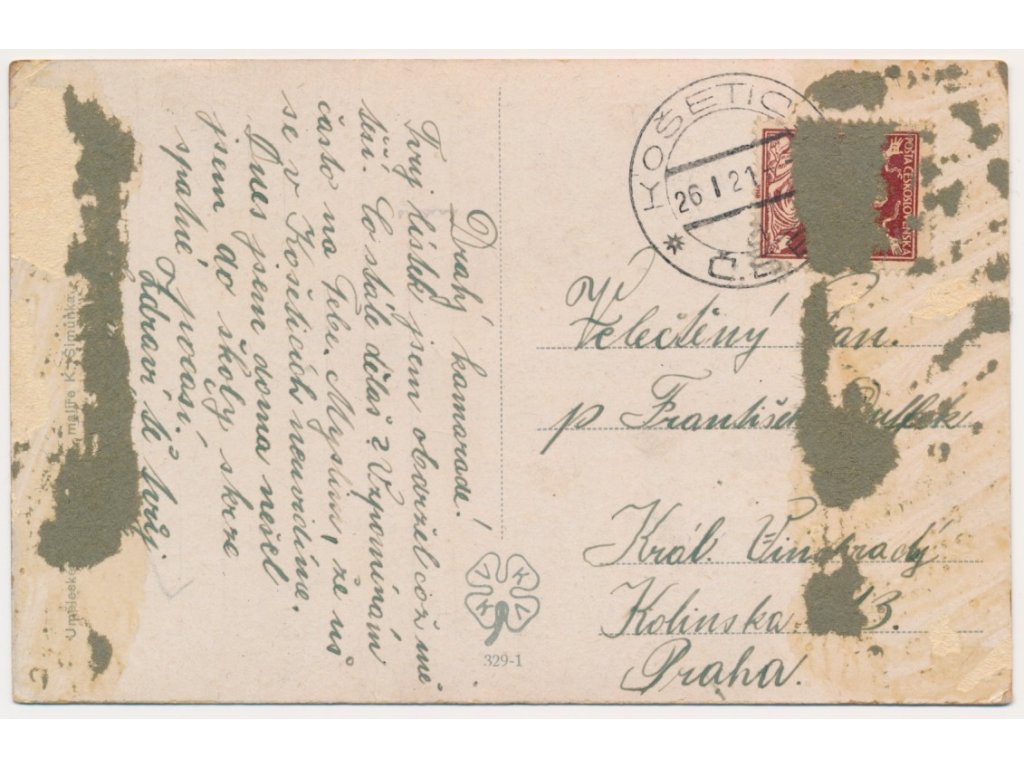 Drahý kamaráde!
Tvůj lístek jsem obdržel což mě
těší. Co stále děláš? Vzpomínám
často na Tebe. Myslím, že už
se v Košeticích neuvidíme.
Dnes jsem doma nešel
jsem do školy skrze
špatné počasí.
Zdraví tě tvůj.
Umělesk
malíře K. Šimůnka
KOŠETIC
26 I 21
Č.S.
POŠTA ČESKOSLOVENSKÁ
Velectěný Pan.
p František
Král. Vinohrady
Kolínska 13.
Praha.
V K K V
329-1